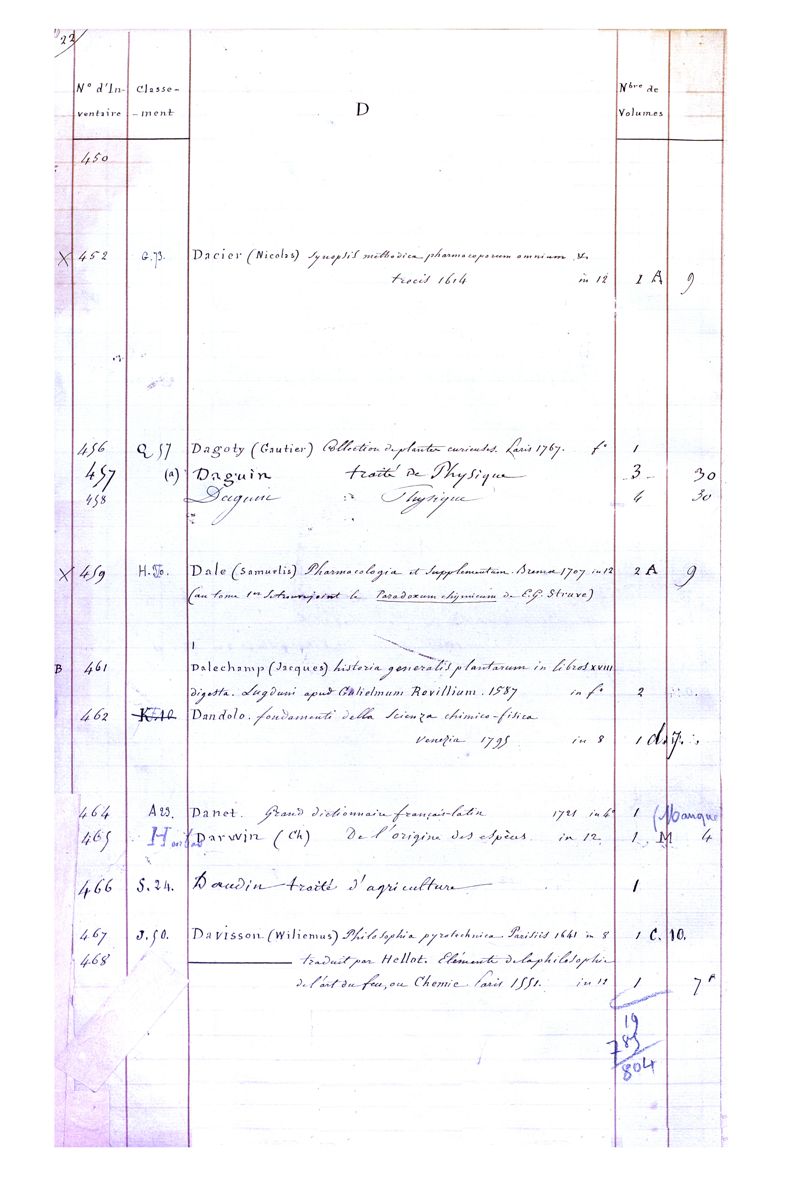 22
N° d'In- Classe- Nbre de
D
ventaire -ment Volumes
450
X 452 G.73. Dacier (Nicolas) Synopsis methodica pharmacoporum omnium &.
trecis 1614 in 12 1 A 9
456 Q 57 Dagoty (Gautier) Collection de plantes curieuses. Paris 1767. f° 1
457 (a) Daguin traité de Physique 3 30
458 Daguin Physique 4 30
X 459 H. Dale (Samuelis) Pharmacologia et Supplementum. Bremæ 1707 in 12 2 A 9
(au tome 1er se trouve joint le Paradoxum chymicum de E.G. Struve)
B 461 Dalechamp (Jacques) historia generalis plantarum in libros XVIII
digesta. Lugduni apud Gulielmum Rovillium. 1587 in f° 2
462 K.10 Dandolo. fondamenti della Scienza chimico-fisica
Venezia 1795 in 8 1 d.7.
464 A 23. Danet. Grand dictionnaire français-latin 1721 in 4° 1 (Manque
465 H Darwin (Ch) De l'origine des espèces in 12. 1 M 4
466 S.24. Daudin traité d'agriculture 1
467 J.50. Davisson (Wiliemus) Philosophia pyrotechnica Parisiis 1641 in 8 1 C. 10.
468 traduit par Hellot. Eléments de la philosophie
de l'art du feu, ou Chemie. Paris 1551. in 11 1 7
19
785
804